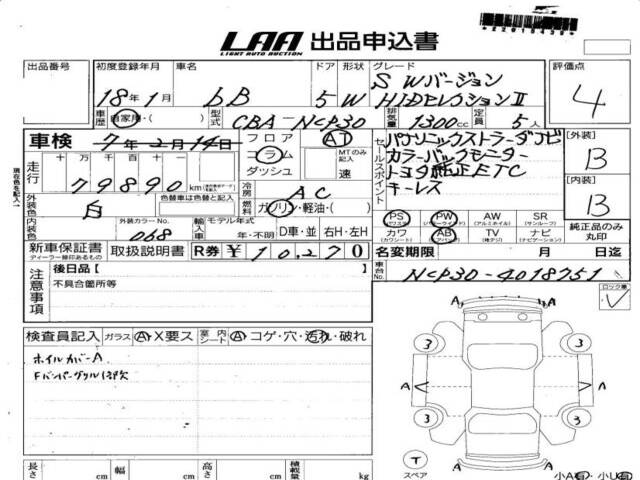 LAA 出品申込書
LIGHT AUTO AUCTION
*22010439*
出品番号 初度登録年月 車名 ドア 形状 グレード 評価点
18年1月 bB 5 W S Wバージョン HIDセレクションⅡ 4
車歴 自家用・( ) 型式 CBA-NCP30 排気量 1300cc 定員 5人
車検 7年2月14日 フロア AT
コラム MTのみ記入
ダッシュ 速
セールスポイント パナソニックストラーダナビ
カラーバックモニター
トヨタ純正ETC
キーレス
【外装】 B
【内装】 B
現在色を記入
走行 十 万 千 百 十
79890 km
冷房 AC
外装色 白 色替車は色替と記入 外装カラーNo. 068
燃料 ガソリン・軽油・( )
輸入車 モデル年式 年・不明 D車・並 右H・左H
PS PW AW SR
(パワステ) (パワーウィンドウ) (アルミホイル) (サンルーフ)
カワ AB TV ナビ
(カワシート) (エアバッグ) (地デジ) (ナビゲーション)
純正品のみ丸印
新車保証書 取扱説明書 R券 ¥10,270
ディーラー捺印あるもの
名変期限 月 日迄
注意事項 後日品【 】
不具合箇所等
車台No. NCP30-4018751
ロック車
検査員記入 ガラス A・X要ス 室内シート A・コゲ・穴・汚れ・破れ
ホイルカバーA
Fバンパーグリル1部欠
A A
3 3
A A
3 3
T
スペア
小A有・小U有
長さ cm 幅 cm 高さ cm 積載量 kg